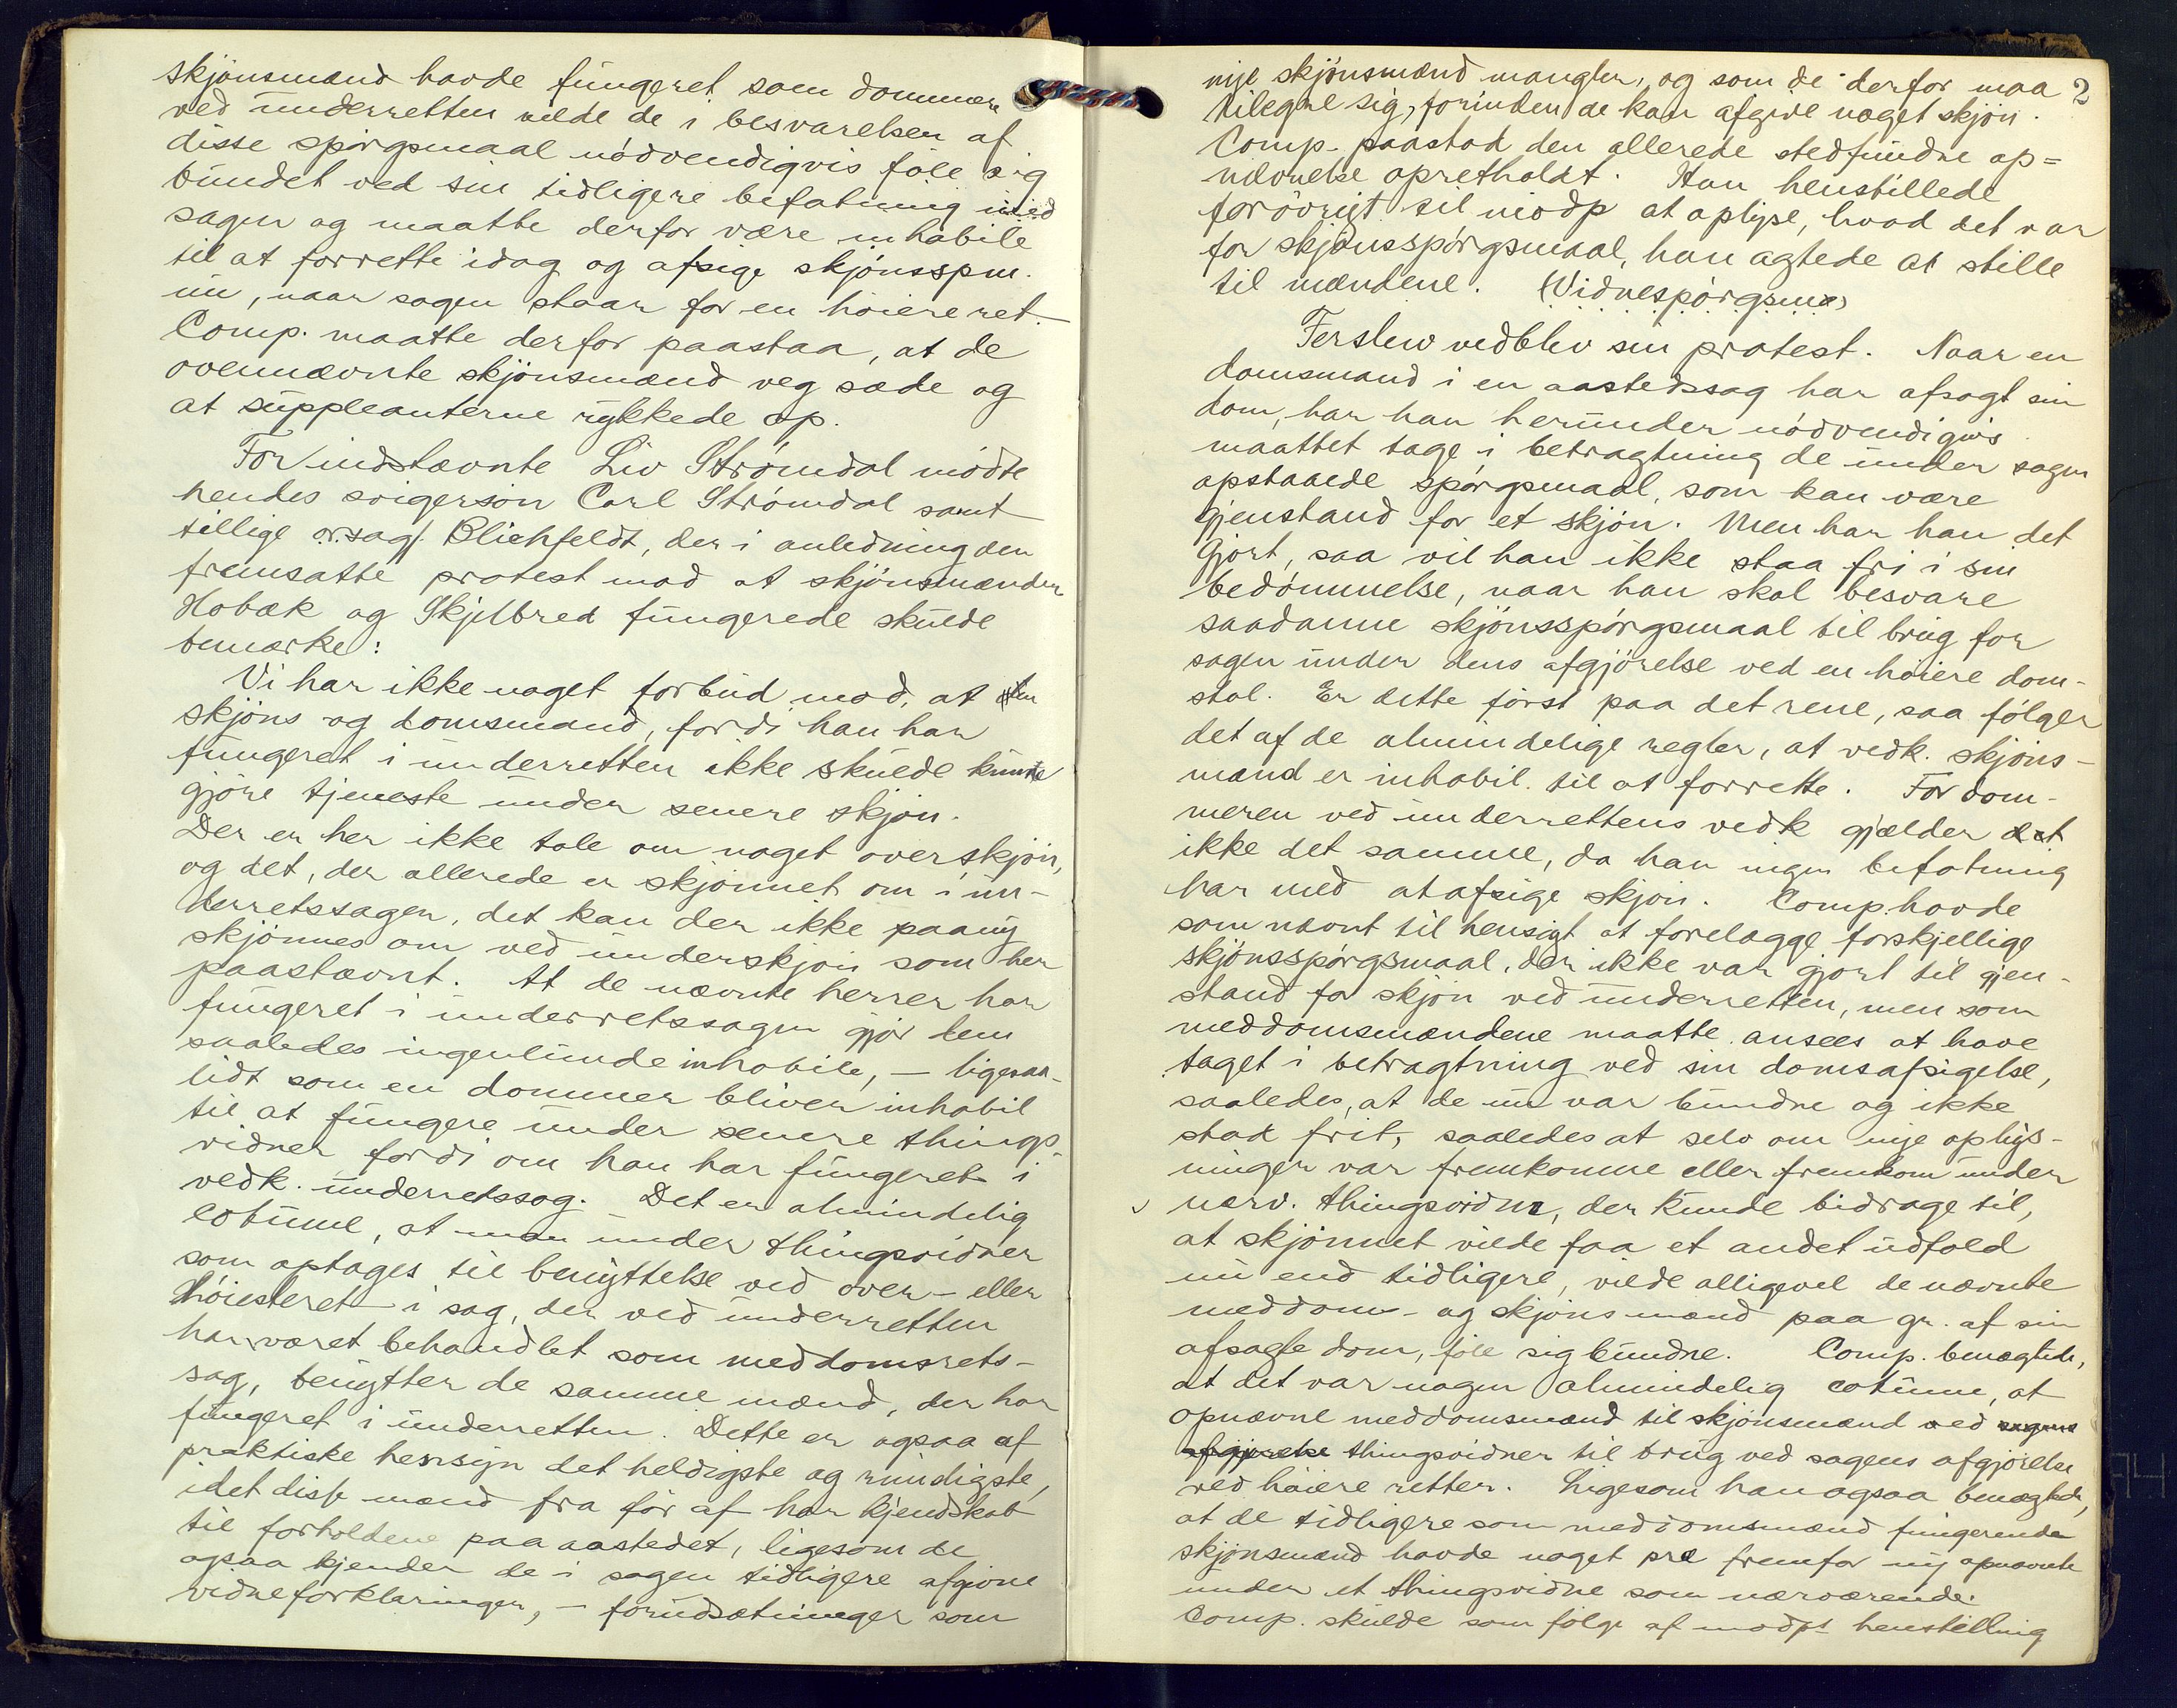 skjönsmænd havde fungeret som dommere
ved underretten vilde de i besvarelsen af
disse spörgsmaal nödvendigvis föle sig
bundet ved sin tidligere befatning med
sagen og maatte derfor være inhabile
til at forrette idag og afsige skjönsspm.
nu, naar sagen staar for en höiere ret.
Comp. maatte derfor paastaa, at de
ovennævnte skjönsmænd veg sæde og
at suppleanterne rykkede op.
For indstævnte Liv Strömdal mödte
hendes svigersön Carl Strömdal samt
tillige o.r.sagf. Blichfeldt, der i anledning den
fremsatte protest mod at skjönsmænden
Hobæk og Skjelbred fungerede skulde
bemærke:
Vi har ikke noget forbud mod, at en
skjöns og domsmand, fordi han har
fungeret i underretten ikke skulde kunne
gjöre tjeneste under senere skjön.
Der er her ikke tale om noget overskjön,
og det, der allerede er skjönnet om i un-
derretssagen, det kan der ikke paany
skjönnes om ved underskjön som her
paastævnt. At de nævnte herrer har
fungeret i underretssagen gjör dem
saaledes ingenlunde inhabile, – ligesaa-
lidt som en dommer bliver inhabil
til at fungere under senere things-
vidner fordi om han har fungeret i
vedk. underretssag. Det er almindelig
cotume, at man under thingsvidner
som optages til benyttelse ved over- eller
Höiesteret i sag, der ved underretten
har været behandlet som meddomsrets-
sag, benytter de samme mænd, der har
fungeret i underretten. Dette er ogsaa af
praktiske hensyn det heldigste og rimeligste,
idet disse mænd fra för af har kjendskab
til forholdene paa aastedet, ligesom de
ogsaa kjender de i sagen tidligere afgivne
vidneforklaringer, – forudsætninger som
2
nye skjönsmænd mangler, og som de derfor maa
tilegne sig, forinden de kan afgive noget skjön.
Comp. paastod den allerede stedfundne op=
nævnelse opretholdt. Han henstillede
forövrigt til modp at oplyse, hvad det var
for skjönsspörgsmaal, han agtede at stille
til mændene. (Vidnespörgsm.)
Ferslew vedblev sin protest. Naar en
domsmand i en aastedssag har afsagt sin
dom, har han herunder nödvendigvis
maattet tage i betragtning de under sagen
opstaaede spörgsmaal, som kan være
gjenstand for et skjön. Men har han det
gjort, saa vil han ikke staa fri i sin
bedömmelse, naar han skal besvare
saadanne skjönsspörgsmaal til brug for
sagen under dens afgjörelse ved en höiere dom-
stol. Er dette först paa det rene, saa fölger
det af de almindelige regler, at vedk. skjöns-
mænd er inhabil til at forrette. For dom-
meren ved underrettens vedk gjælder det
ikke det samme, da han ingen befatning
har med at afsige skjön. Comp. havde
som nævnt til hensigt at forelægge forskjellige
skjönsspörgsmaal, der ikke var gjort til gjen-
stand for skjön ved underretten, men som
meddomsmændene maatte ansees at have
taget i betragtning ved sin domsafsigelse,
saaledes, at de nu var bundne og ikke
stod frit, saaledes at selv om nye oplys-
ninger var fremkomne eller fremkom under
nærv. thingsvidne, der kunde bidrage til,
at skjönnet vilde faa et andet udfald
nu end tidligere, vilde alligevel de nævnte
meddoms- og skjönsmænd paa gr. af sin
afsagte dom, föle sig bundne. Comp. benægtede,
at det var nogen almindelig cotume, at
opnævne meddomsmænd til skjönsmænd ved sagens
afgjörelse thingsvidner til brug ved sagens afgjörelse
ved höiere retter. Ligesom han ogsaa benægtede,
at de tidligere som meddomsmænd fungerende
skjönsmænd havde noget præ fremfor ny opnævnte
under et thingsvidne som nærværende.
Comp. skulde som fölge af modpts henstilling